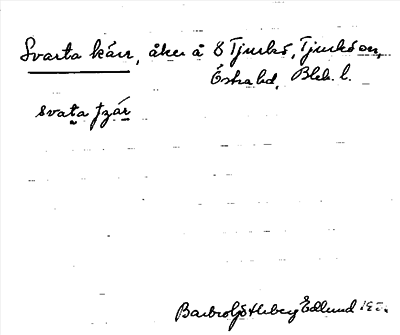 Svarta kärr, åker å 8 Tjurkö, Tjurkö sn,
Östra hd, Blek. l.
svata tzár
Barbro Edlund